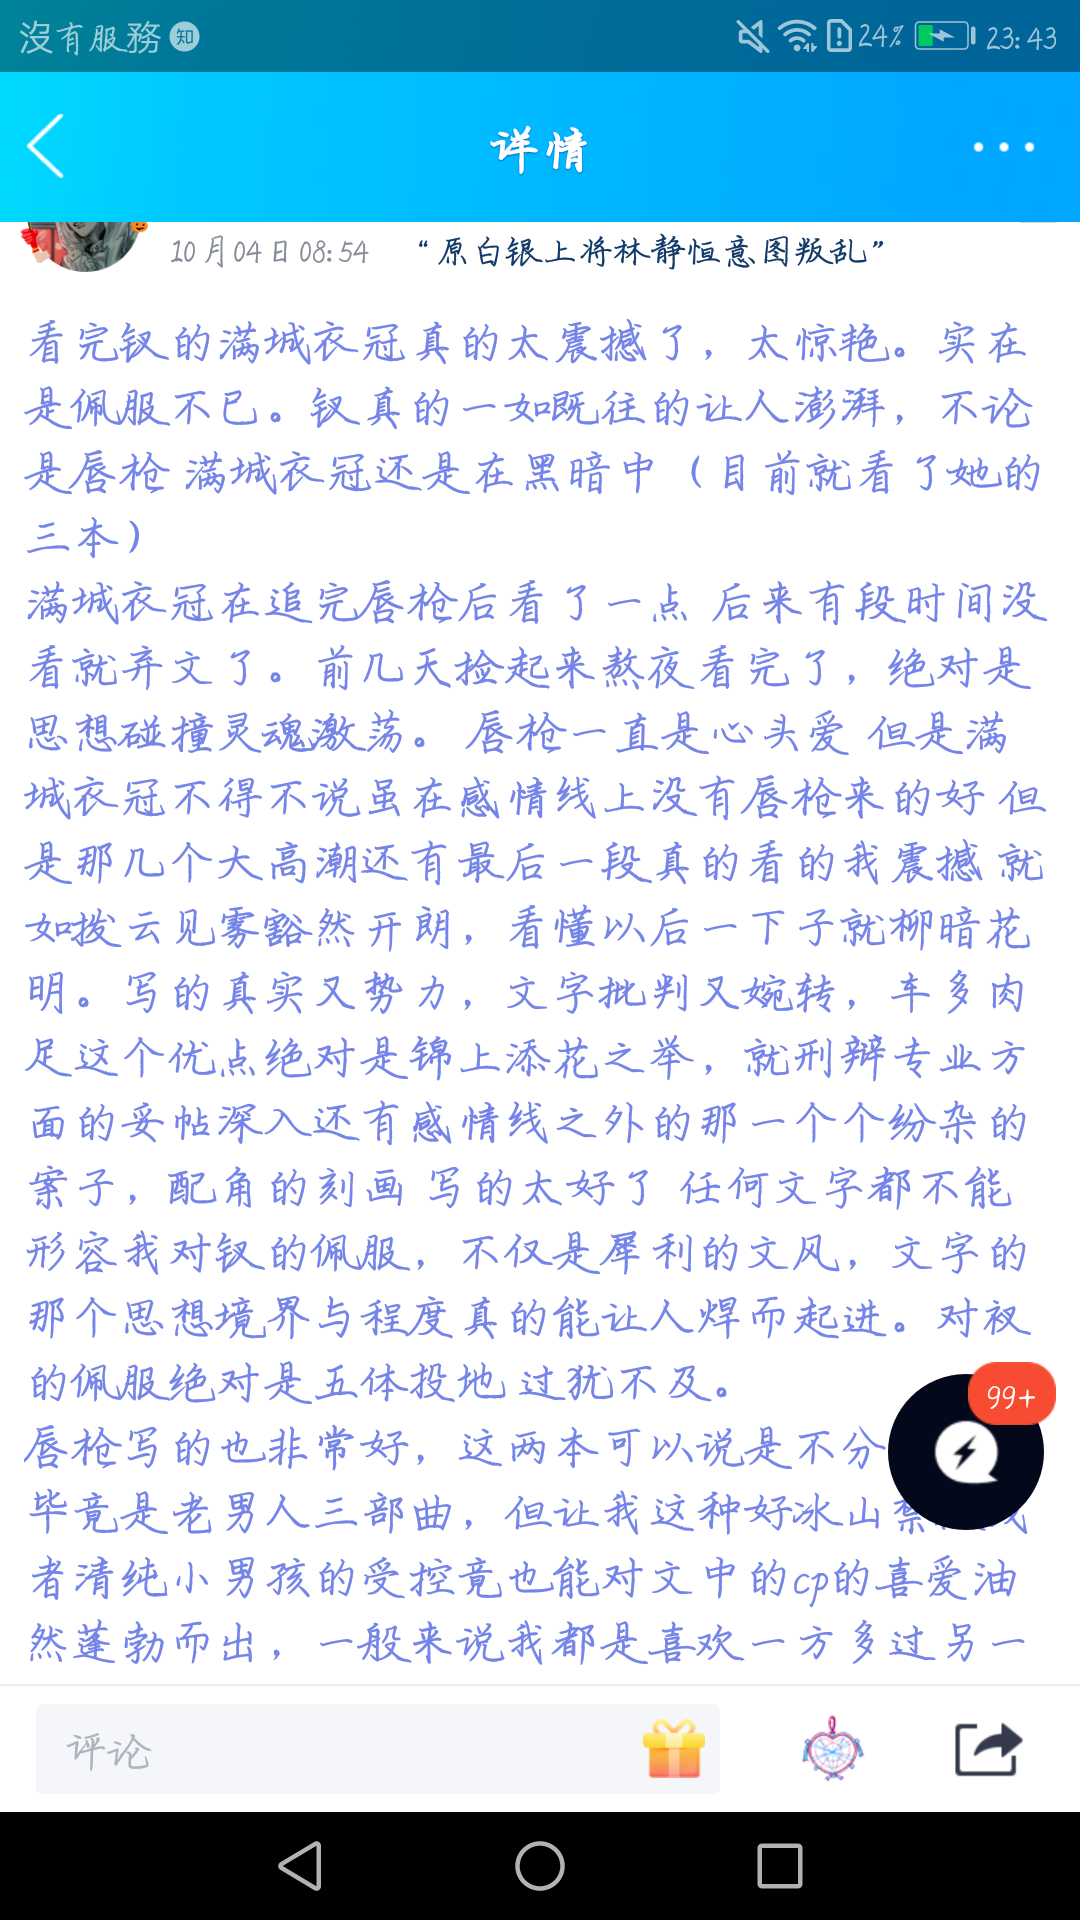 沒有服務 知 24% 23:43
详情
10月04日 08:54 “原白银上将林静恒意图叛乱”
看完钗的满城衣冠真的太震撼了，太惊艳。实在
是佩服不已。钗真的一如既往的让人澎湃，不论
是唇枪 满城衣冠还是在黑暗中（目前就看了她的
三本）
满城衣冠在追完唇枪后看了一点 后来有段时间没
看就弃文了。前几天捡起来熬夜看完了，绝对是
思想碰撞灵魂激荡。 唇枪一直是心头爱 但是满
城衣冠不得不说虽在感情线上没有唇枪来的好 但
是那几个大高潮还有最后一段真的看的我震撼 就
如拨云见雾豁然开朗，看懂以后一下子就柳暗花
明。写的真实又势力，文字批判又婉转，车多肉
足这个优点绝对是锦上添花之举，就刑辩专业方
面的妥帖深入还有感情线之外的那一个个纷杂的
案子，配角的刻画 写的太好了 任何文字都不能
形容我对钗的佩服，不仅是犀利的文风，文字的
那个思想境界与程度真的能让人焊而起进。对衩
的佩服绝对是五体投地 过犹不及。
唇枪写的也非常好，这两本可以说是不分
毕竟是老男人三部曲，但让我这种好冰山禁
者清纯小男孩的受控竟也能对文中的cp的喜爱油
然蓬勃而出，一般来说我都是喜欢一方多过另一
99+
评论